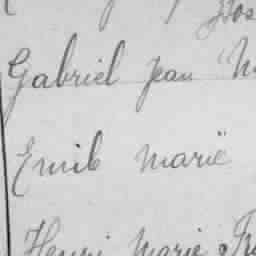 Gabriel Jean
Emile Marië
Henri Marie